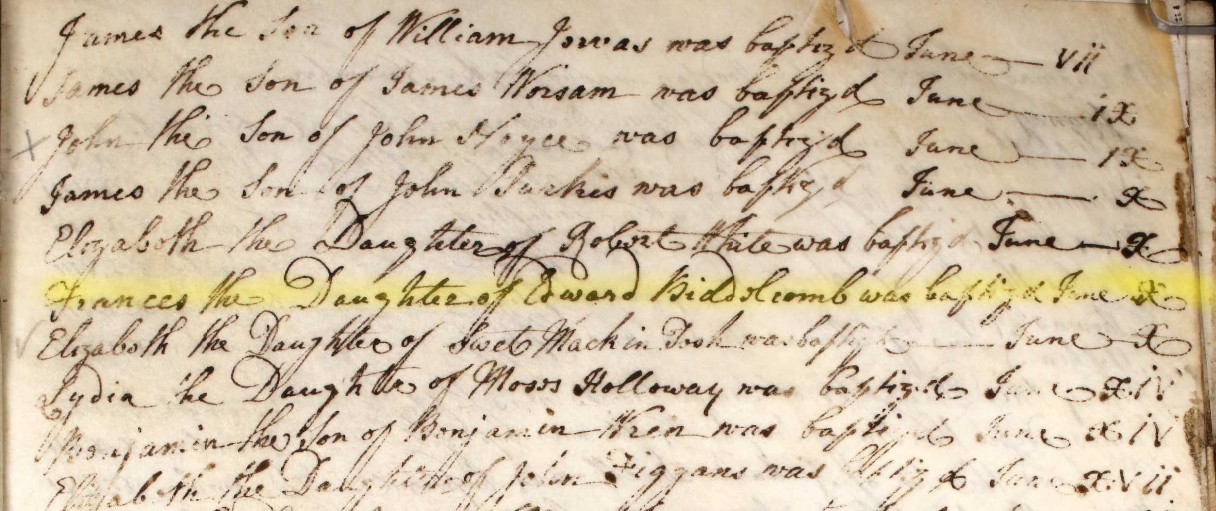 James the Son of William Jorvas was baptiz'd June — vii
James the Son of James Worsam was baptiz'd June — ix
John the Son of John Noyce was baptiz'd June — ix
James the Son of John Purkis was baptiz'd June — x
Elizabeth the Daughter of Robert White was baptiz'd June — x
Frances the Daughter of Edward Biddelcomb was baptiz'd June x
Elizabeth the Daughter of Swet Mackin Tosh was baptiz'd — June x
Lydia the Daughter of Moses Holloway was baptiz'd June xiv
Benjamin the Son of Benjamin Wren was baptiz'd June xiv
Elizabeth the Daughter of John Figgans was baptiz'd June xvii